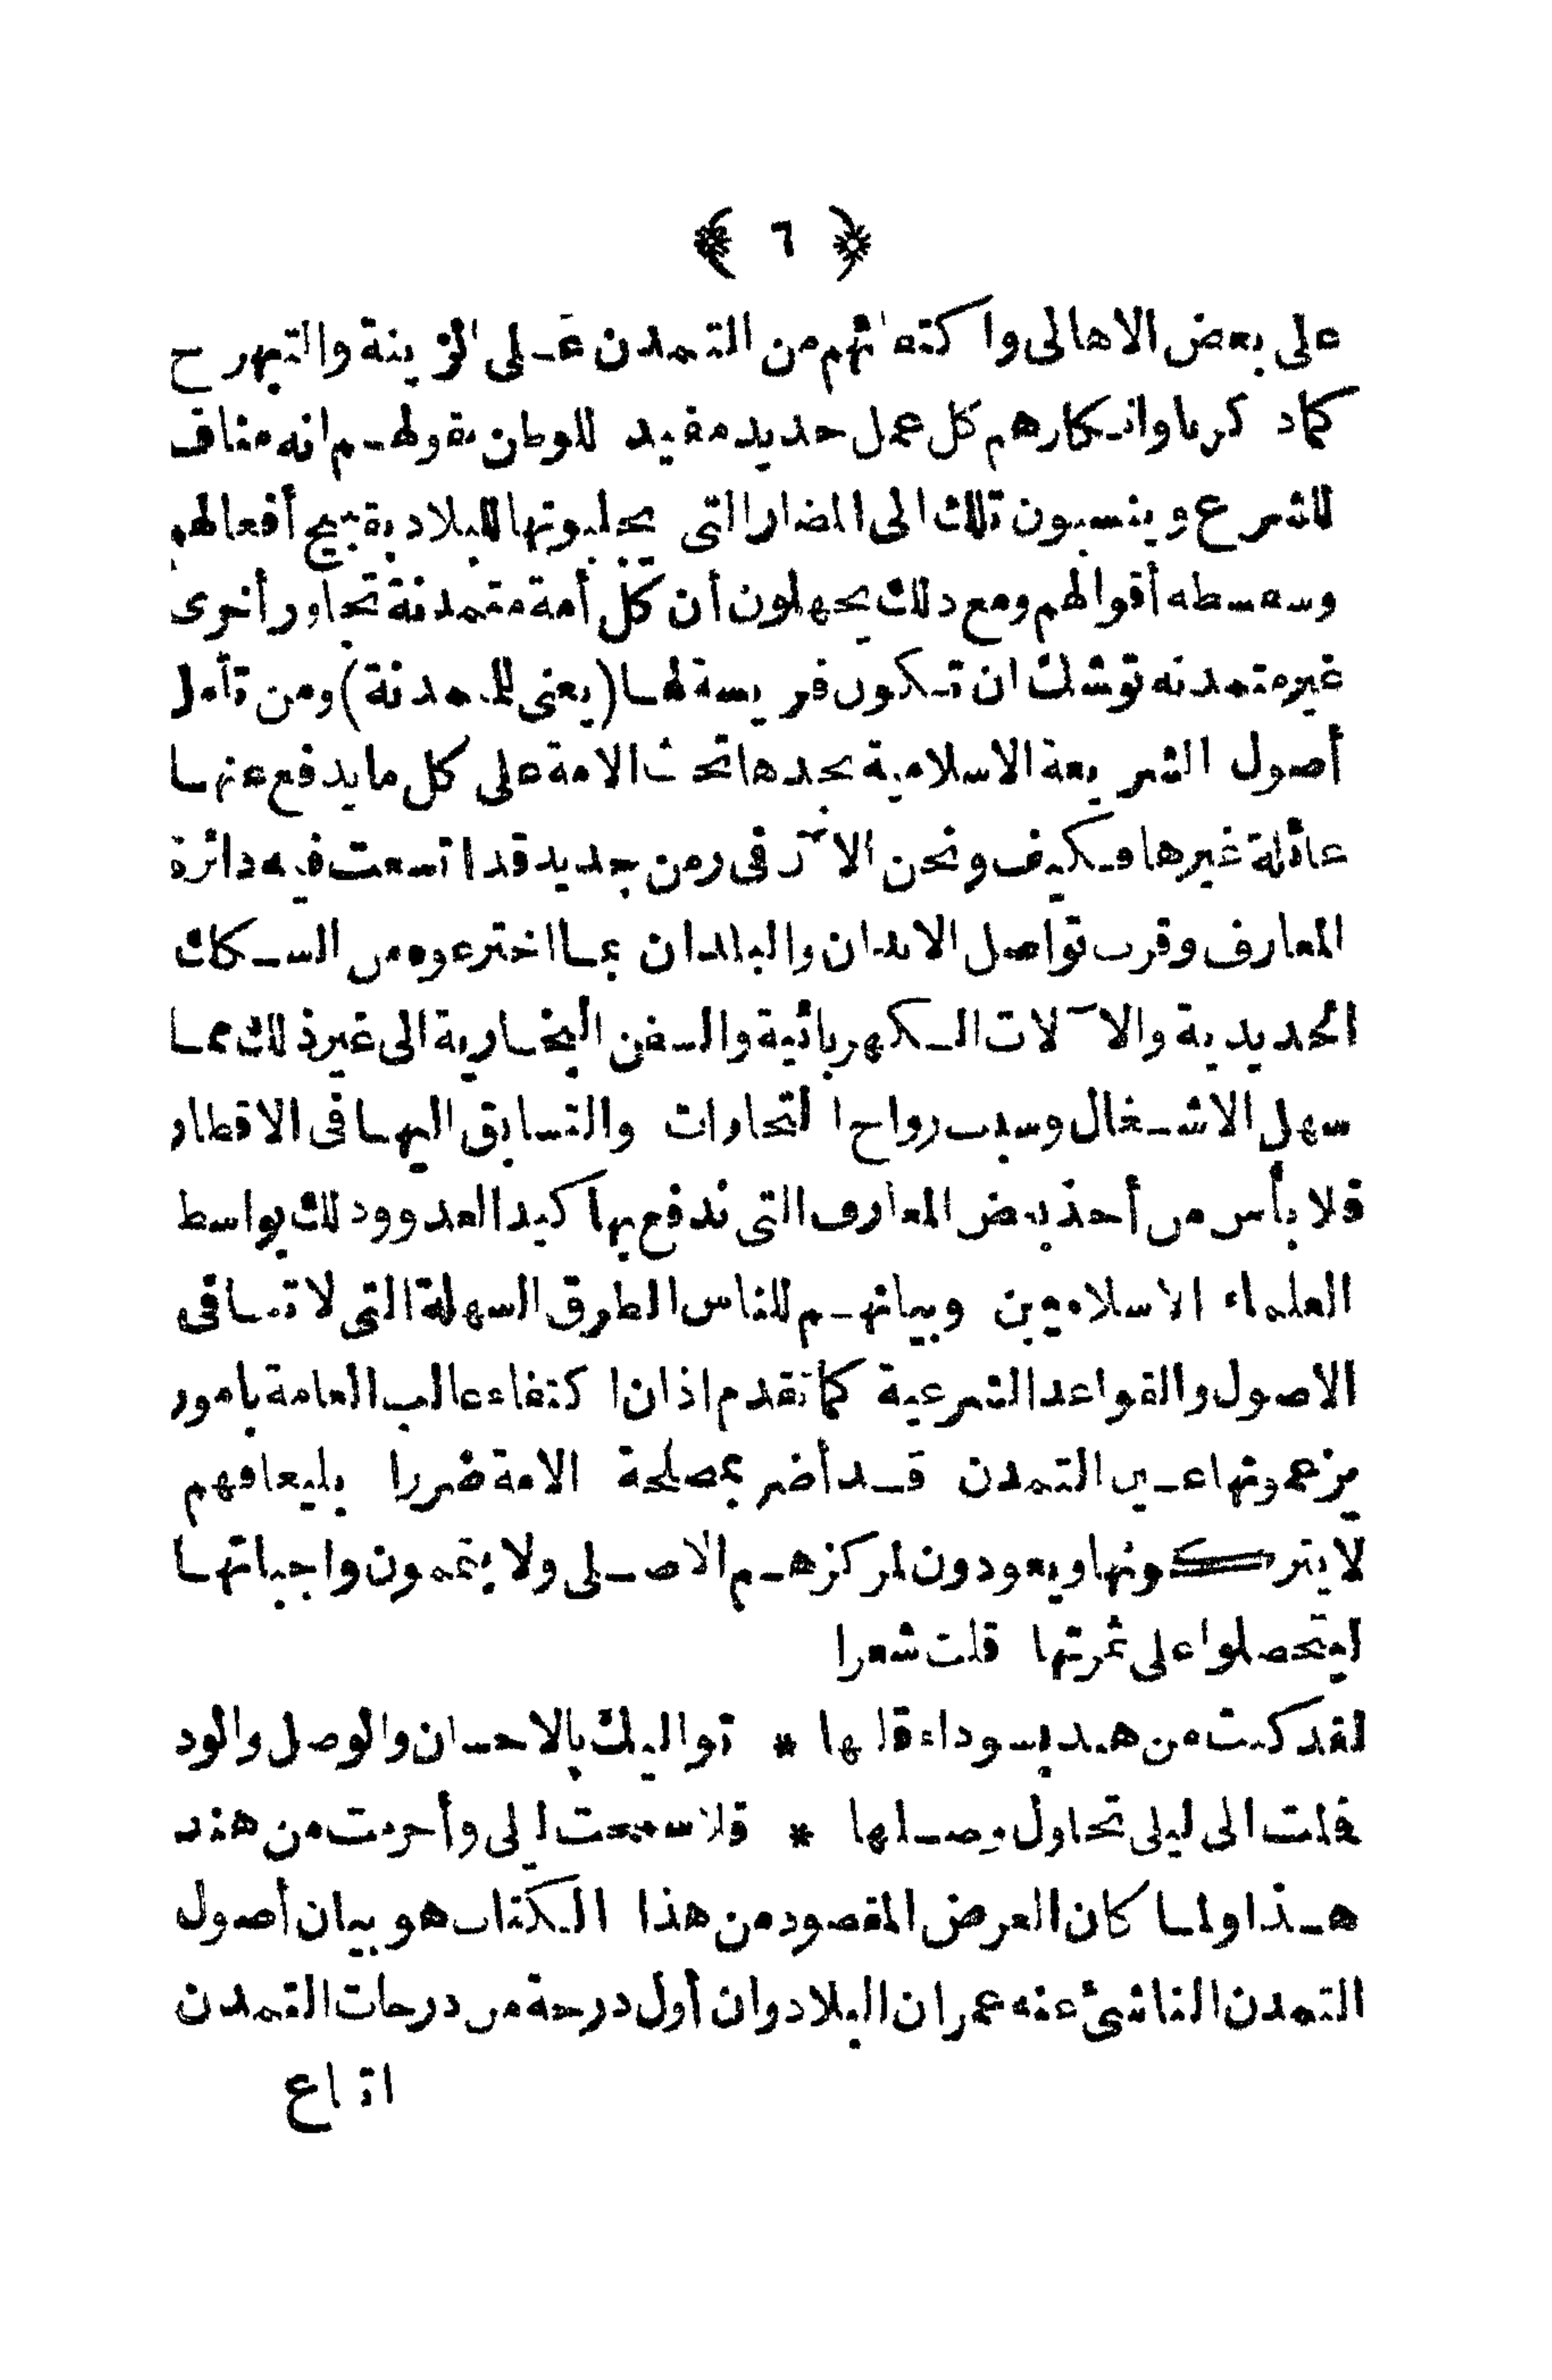 ﴿ ٦ ﴾
على بعض الاهالى واكتفائهم من التمدن على الزينة والتبهرج
كما ذكرنا وانكارهم كل عمل جديد مفيد للوطن بقولهم انه مناف
للشرع وينسبون تلك الى المضار التى يجلبونها للبلاد بقبيح أفعالهم
وسفسطه أقوالهم ومع ذلك يجهلون أن كل أمة متمدنة تجاور أخرى
غير متمدنه توشك ان تكون فريسة لها (يعنى للمتمدنة) ومن تأمل
أصول الشريعة الاسلامية يجدها تحث الامة على كل ما يدفع عنها
غائلة غيرها فكيف ونحن الآن فى زمن جديد قد اتسعت فيه دائرة
المعارف وقرب تواصل الابدان والبلدان بما اخترعوه من السكك
الحديدية والآلات الكهربائية والسفن البخارية الى غير ذلك مما
سهل الاشغال وسبب رواج التجارات والتسابق اليها فى الاقطار
فلا بأس من أخذ بعض المعارف التى ندفع بها كيد العدو وذلك بواسط
العلماء الاسلاميين وبيانهم للناس الطرق السهلة التى لا تنافى
الاصول والقواعد الشرعية كما تقدم اذ ان اكتفاء غالب العامة بامور
يزعمونها عين التمدن قد أضر بمصلحة الامة ضررا بليغا فهم
لا يتركونها ويعودون لمركزهم الاصلى ولا يتممون واجباتها
ليتحصلوا على ثمرتها قلت شعرا
لقد كنت من هند بسوداء قلبها * تواليك بالاحسان والوصل والود
فملت الى ليلى تحاول وصلها * فلا سمحت ليلى وأحرمت من هند
هذا ولما كان الغرض المقصود من هذا الكتاب هو بيان أصول
التمدن الناشئ عنه عمران البلاد وان أول درجة من درجات التمدن
اتباع